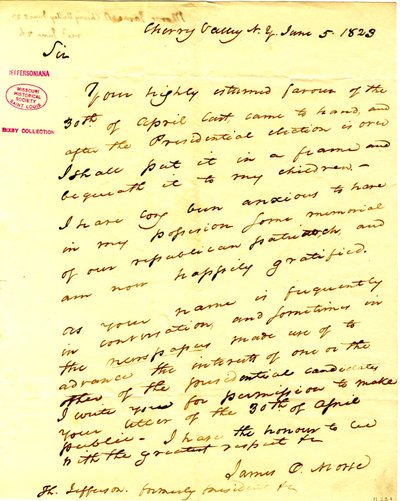 Cherry Valley N.Y. June 5. 1823
Sir
JEFFERSONIANA
MISSOURI
HISTORICAL
SOCIETY
SAINT LOUIS
BIXBY COLLECTION
Your highly esteemed favour of the
30th of April last, came to hand, and
after the Presidential election is over
I shall put it in a frame and
bequeath it to my children.–
I have long been anxious to have
in my possession some memorial
of our republican patriarch, and
am now happily gratified.
As your name is frequently
in conversation, and sometimes in
the newspapers made use of to
advance the interests of one or the
other of the presidential candidates
I write you for permission to make
your letter of the 30th of April
public– I have the honour to be
with the greatest respect &c
James O. Morse
Th. Jefferson. formerly president &c